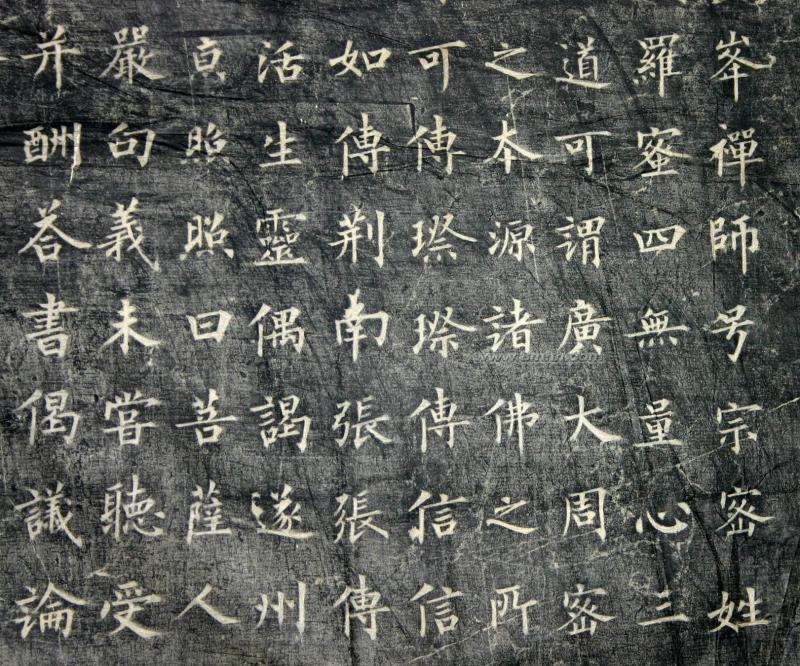 峯禪師号宗密姓
羅蜜四無量心三
道可謂廣大周密
之本源諸佛之所
可傳璨璨傳信信
如傳荆南張張傳
活生靈偶謁遂州
亰照照曰菩薩人
嚴句義未嘗聽受
并酬荅書偈議論